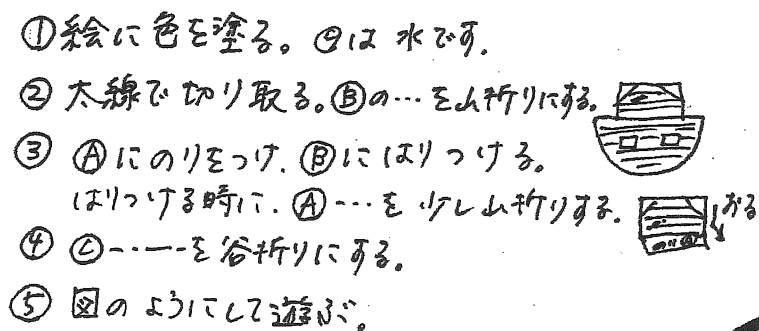 ①絵に色を塗る。©は水です。
②太線で切り取る。Ⓑの…を山折りにする。
③Ⓐにのりをつけ、Ⓑにはりつける。
はりつける時に、Ⓐ…を少し山折りする。
おる
④©-・-・-を谷折りにする。
⑤図のようにして遊ぶ。